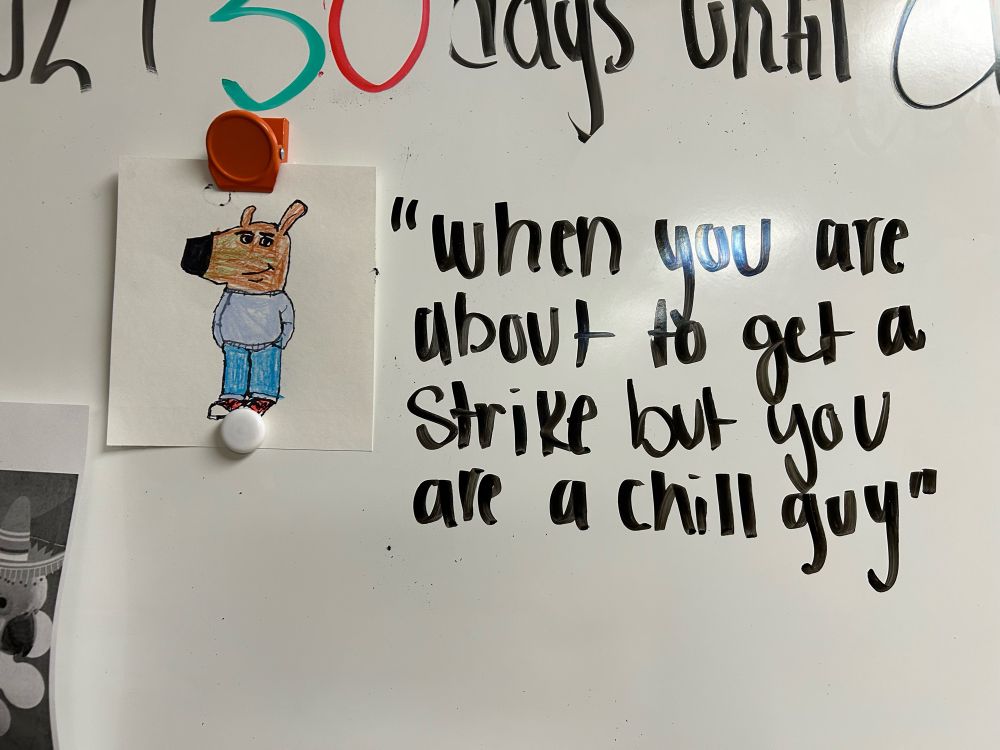 30 days until
"when you are
about to get a
strike but you
are a chill guy"